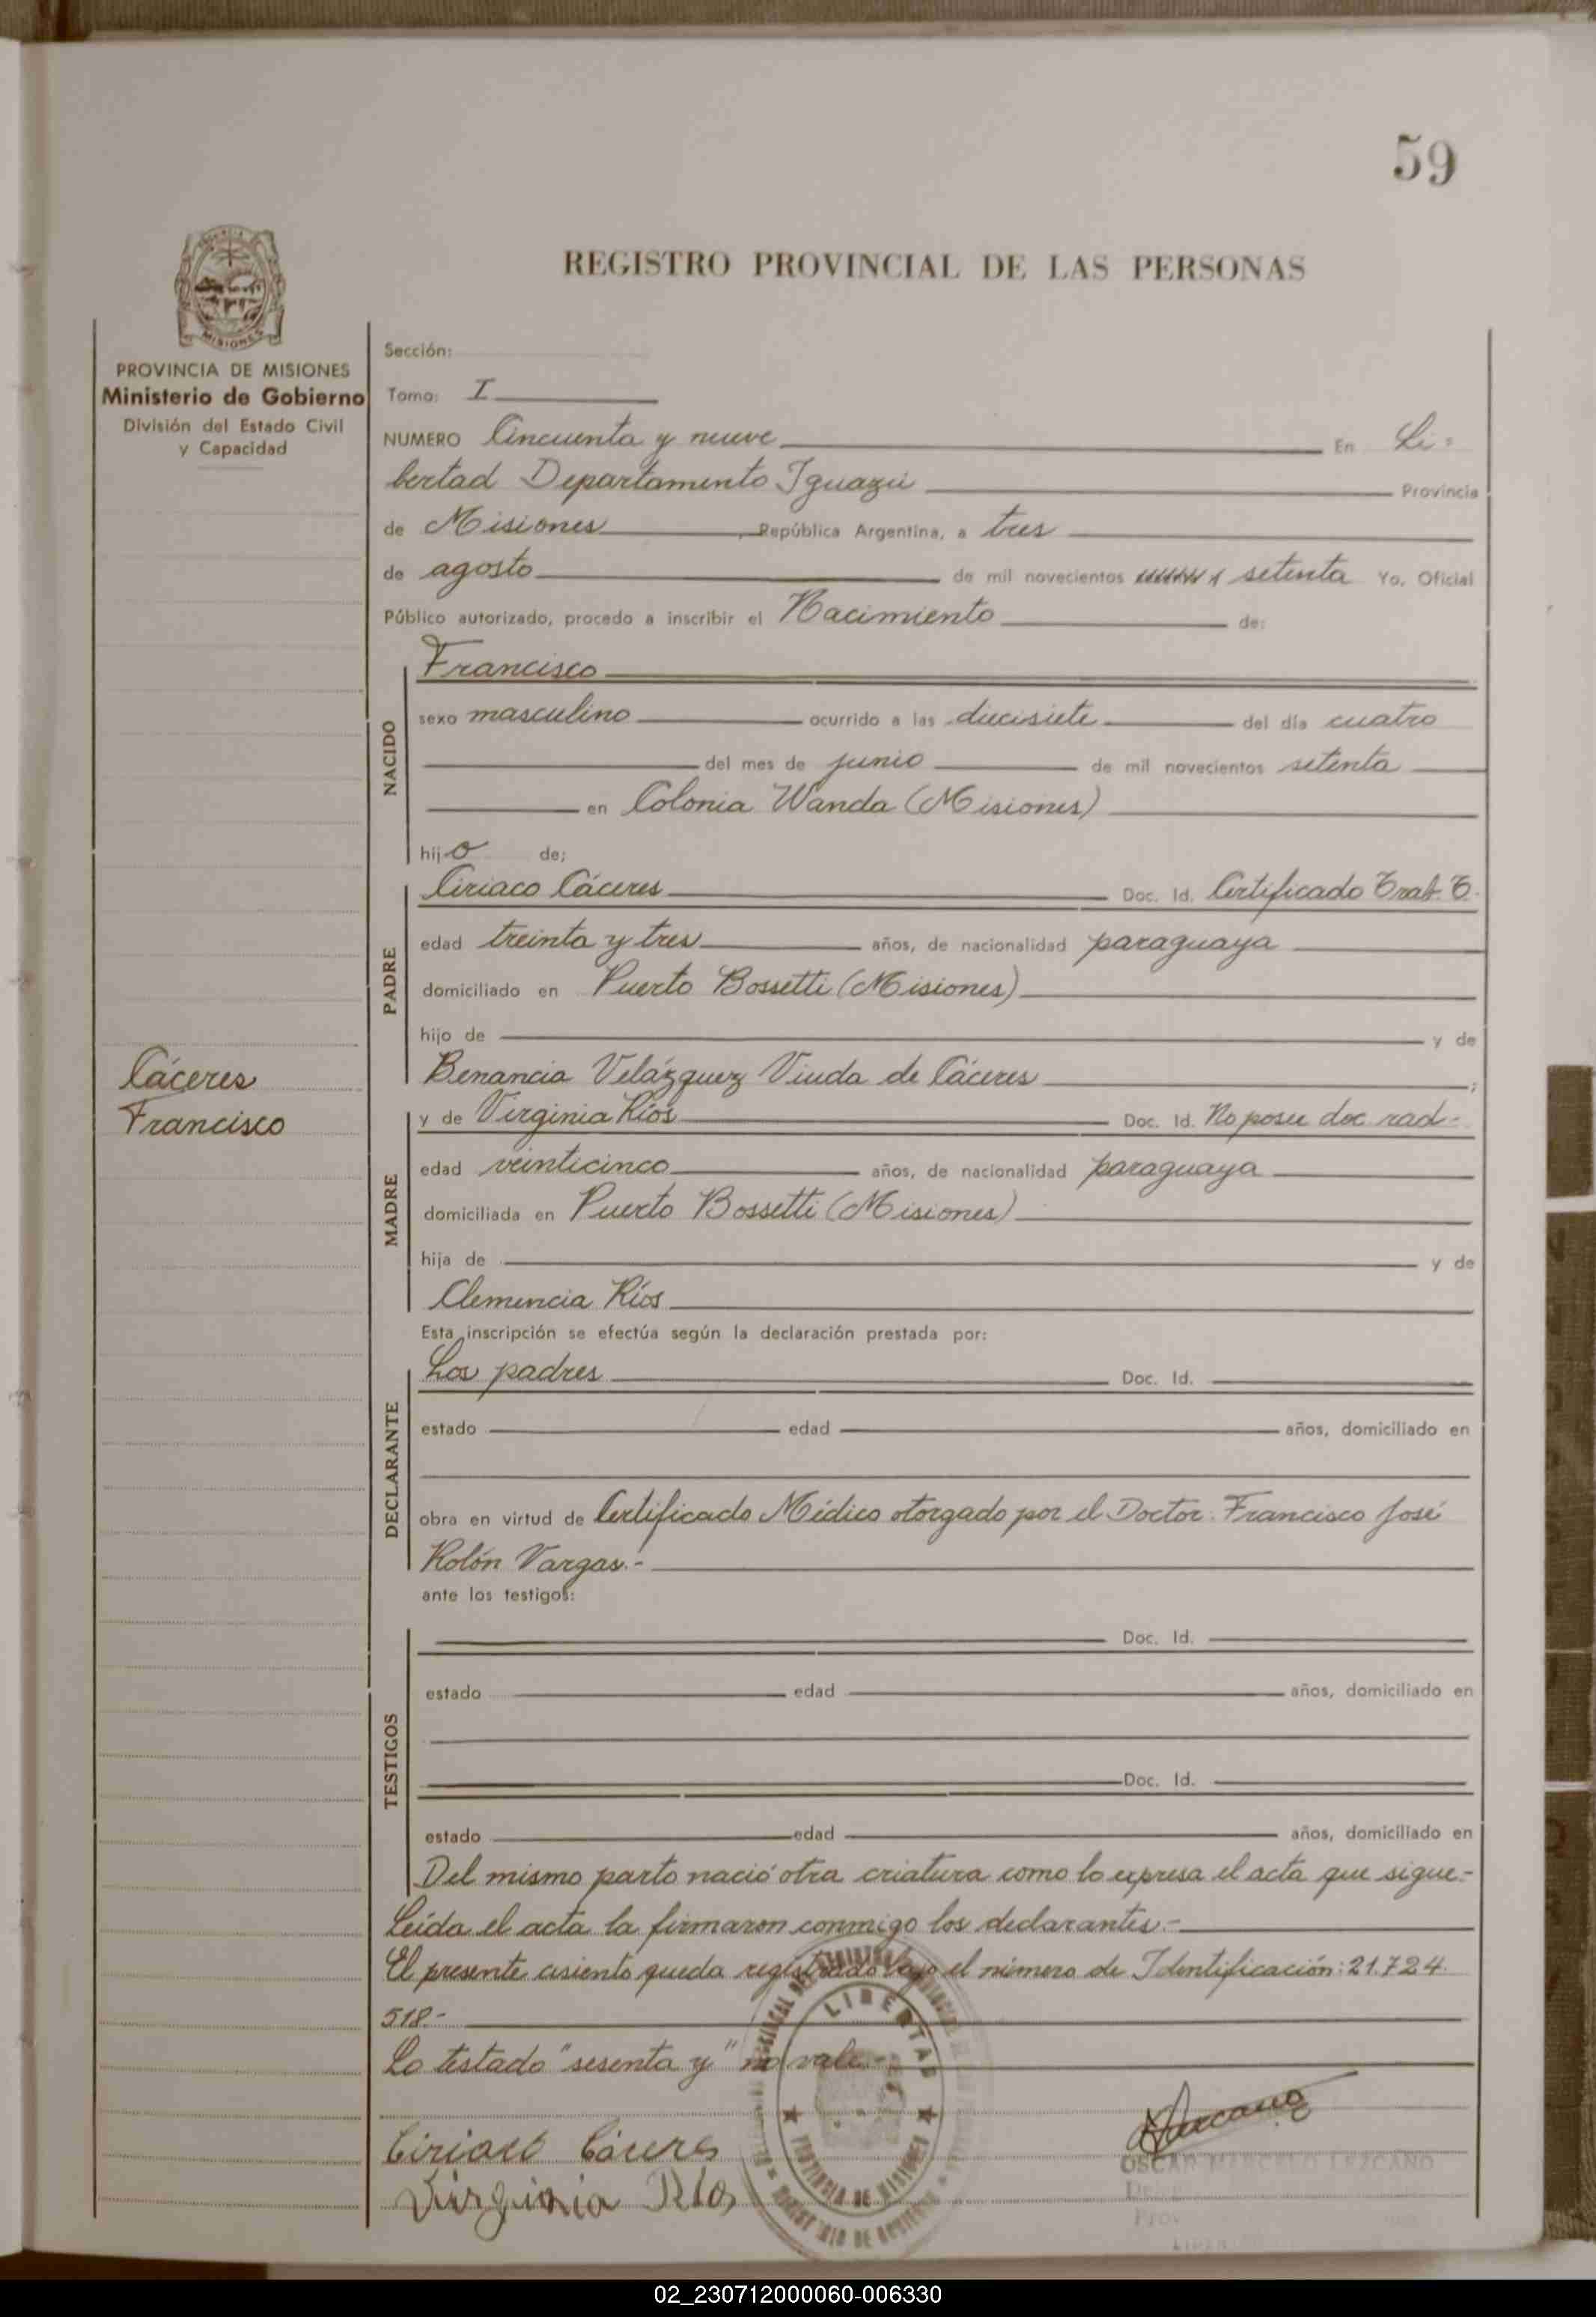 59
REGISTRO PROVINCIAL DE LAS PERSONAS
MISIONES
PROVINCIA DE MISIONES
Ministerio de Gobierno
División del Estado Civil
y Capacidad
Cáceres
Francisco
Sección:
Tomo: I
NUMERO Cincuenta y nueve En Li-
bertad Departamento Iguazú Provincia
de Misiones, República Argentina, a tres
de agosto de mil novecientos setenta Yo, Oficial
Público autorizado, procedo a inscribir el Nacimiento de:
NACIDO
Francisco
sexo masculino ocurrido a las diecisiete del día cuatro
del mes de junio de mil novecientos setenta
en Colonia Wanda (Misiones)
hijo de;
PADRE
Ciriaco Cáceres Doc. Id. Certificado Trab. T.
edad treinta y tres años, de nacionalidad paraguaya
domiciliado en Puerto Bossetti (Misiones)
hijo de y de
Benancia Velázquez Viuda de Cáceres;
MADRE
y de Virginia Ríos Doc. Id. No posee doc. rad-
edad veinticinco años, de nacionalidad paraguaya
domiciliada en Puerto Bossetti (Misiones)
hija de y de
Clemencia Ríos
Esta inscripción se efectúa según la declaración prestada por:
DECLARANTE
Los padres Doc. Id.
estado edad años, domiciliado en
obra en virtud de Certificado Médico otorgado por el Doctor: Francisco José
Rolón Vargas.-
ante los testigos:
TESTIGOS
Doc. Id.
estado edad años, domiciliado en
Doc. Id.
estado edad años, domiciliado en
Del mismo parto nació otra criatura como lo expresa el acta que sigue.-
Leída el acta la firmaron conmigo los declarantes.-
El presente asiento queda registrado bajo el número de Identificación: 21.724.
518.-
Lo testado "sesenta y" no vale.-
LIBERTAD
PROVINCIA DE MISIONES
Ciriaco Cáceres
Virginia Rios
OSCAR MARCELO LEZCANO
02_230712000060-006330